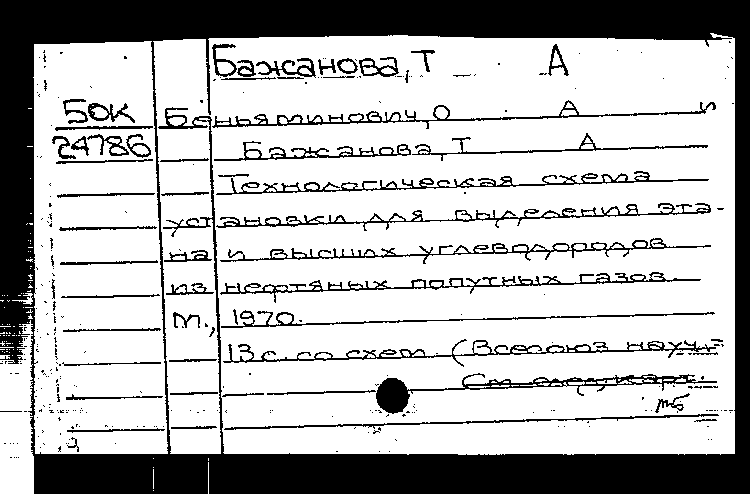 Бажанова, Т А
50К Беньяминович, О А и
24786 Бажанова, Т А
Технологическая схема
установки для выделения эта-
на и высших углеводородов
из нефтяных попутных газов.
М., 1970.
13 с. со схем (Всесоюз науч.-
См. след. карт.
тб